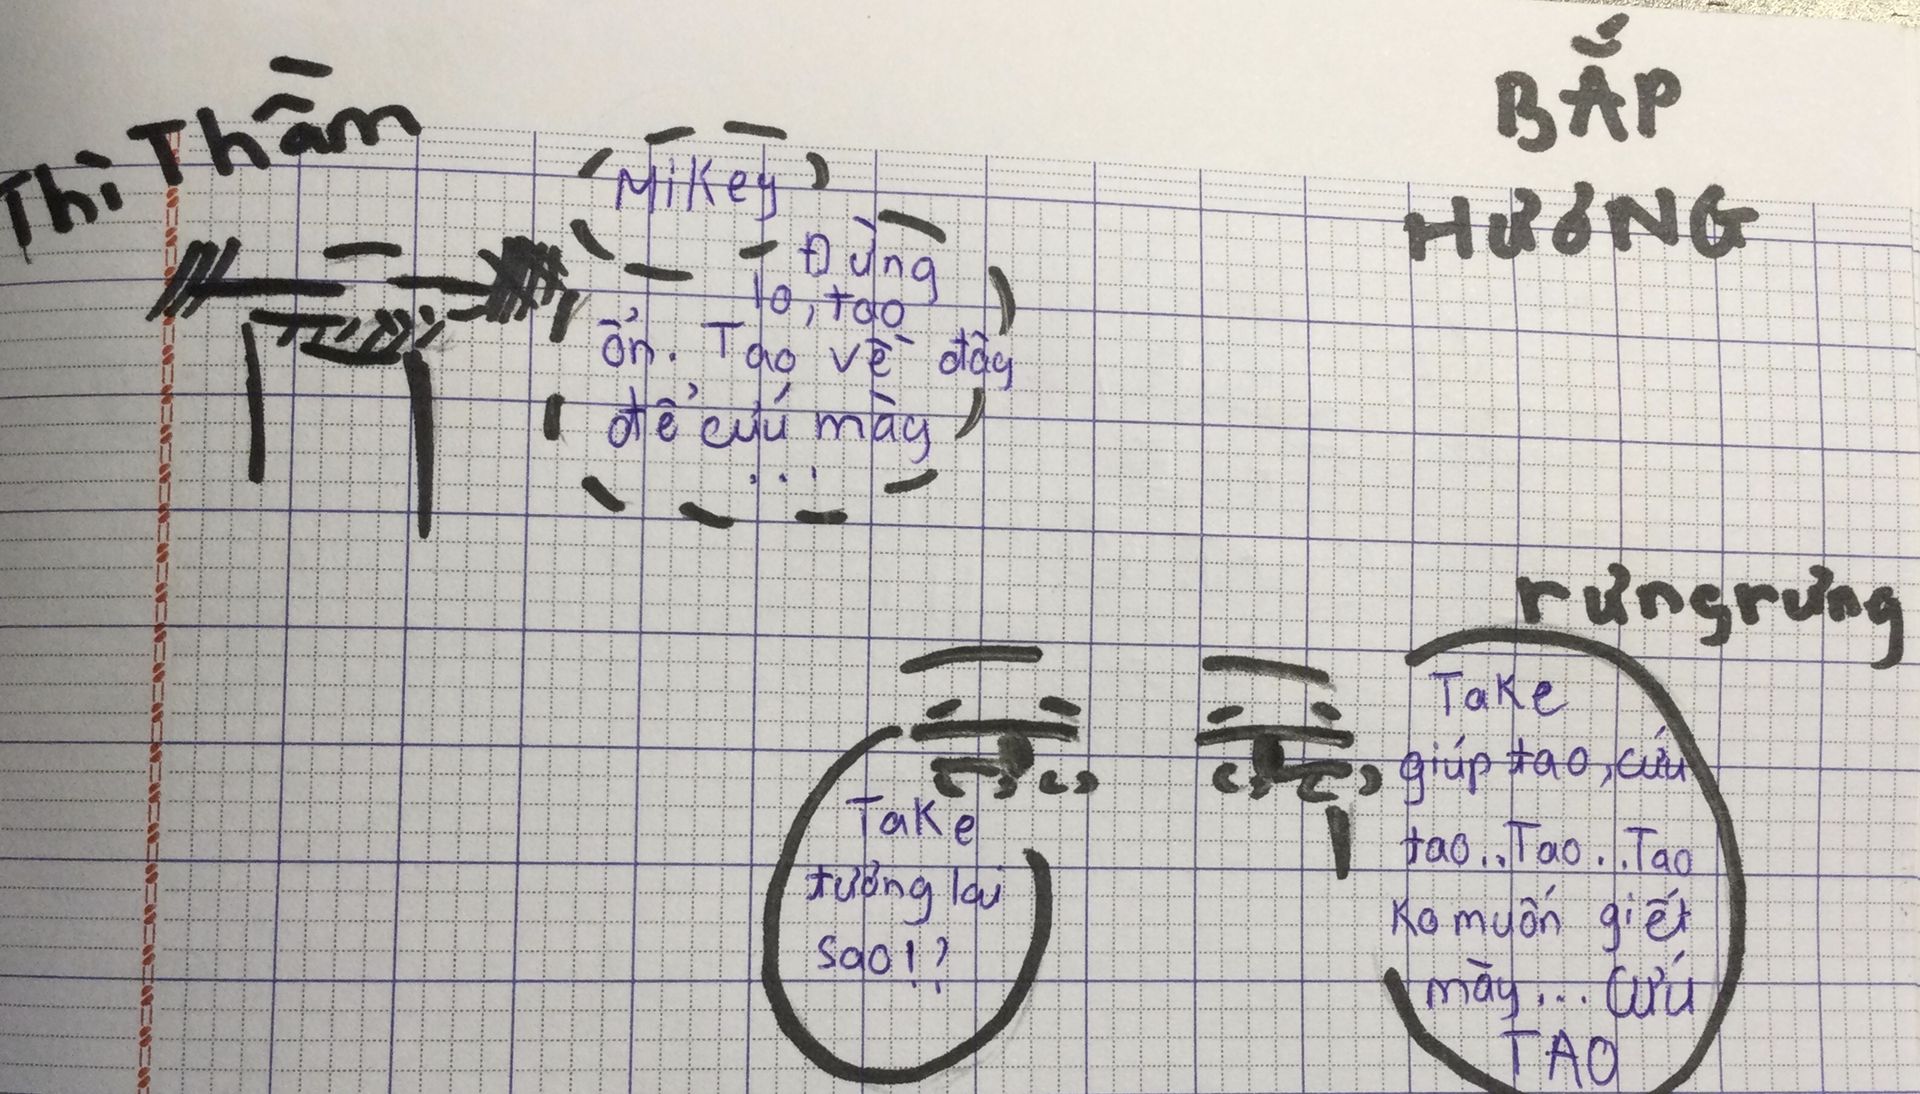 Thì Thầm
BẮP
HƯỚNG
Mikey
Đừng
lo, tao
ổn. Tao về đây
để cứu mày
...
rưng rưng
Take
tương lai
sao!?
Take
giúp tao, cứu
tao.. Tao... Tao
Ko muốn giết
mày... cứu
TAO